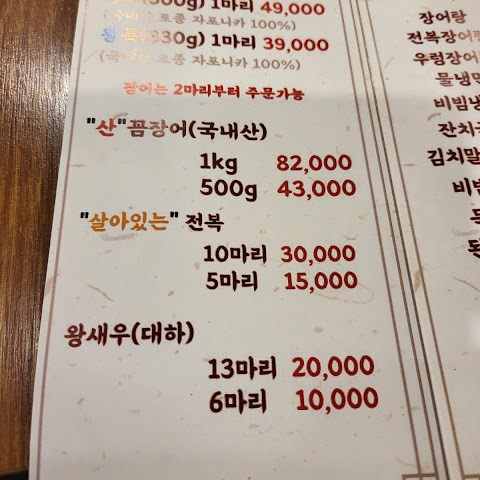 1마리 49,000
(국내산 토종 자포니카 100%)
(330g) 1마리 39,000
(국내산 토종 자포니카 100%)
장어는 2마리부터 주문가능
"산"꼼장어(국내산)
1kg 82,000
500g 43,000
"살아있는" 전복
10마리 30,000
5마리 15,000
왕새우(대하)
13마리 20,000
6마리 10,000
장어탕
전복장어탕
우렁장어
물냉면
비빔냉
잔치국
김치말
비빔